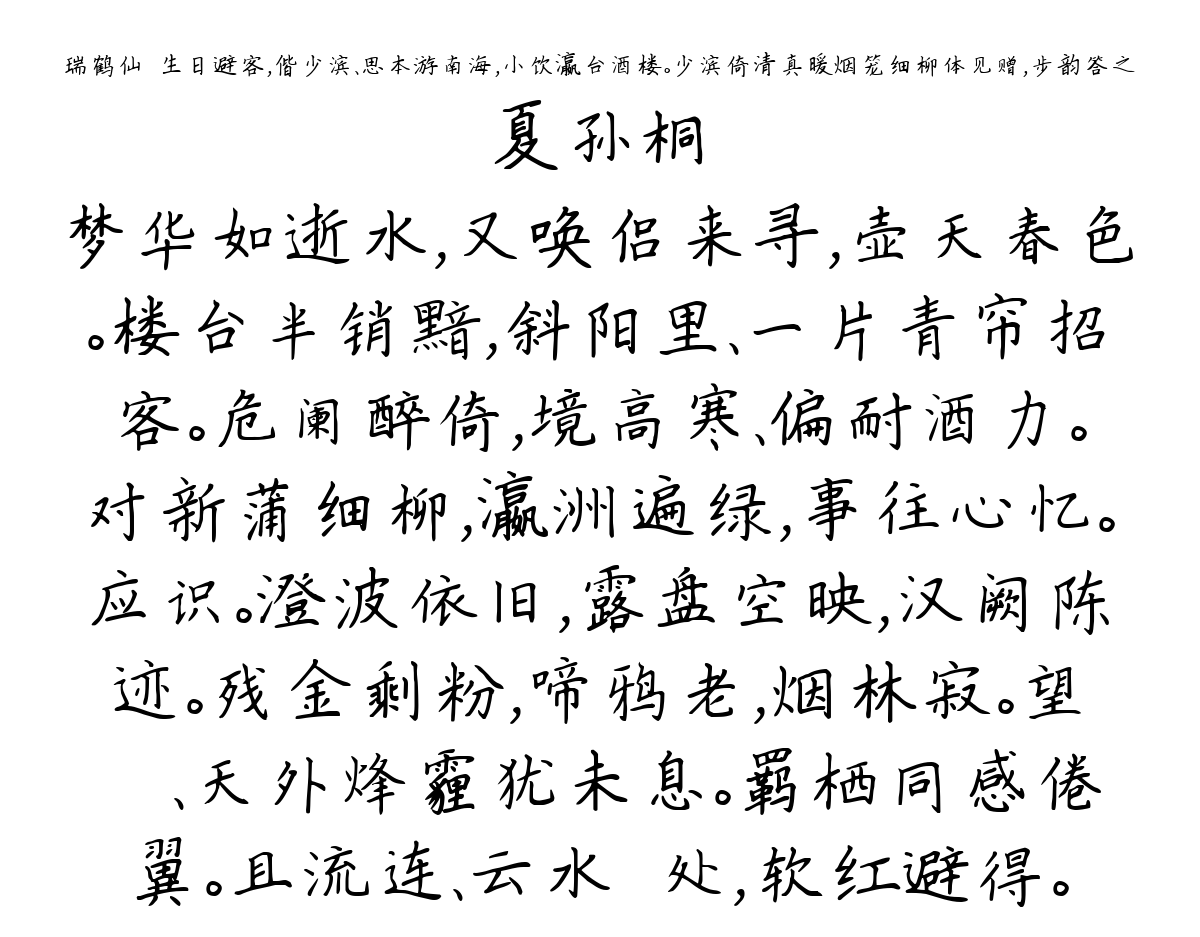 瑞鹤仙 生日避客,偕少滨、思本游南海,小饮瀛台酒楼。少滨倚清真暖烟笼细柳体见赠,步韵答之
夏孙桐
梦华如逝水,又唤侣来寻,壶天春色
。楼台半销黯,斜阳里、一片青帘招
客。危阑醉倚,境高寒、偏耐酒力。
对新蒲细柳,瀛洲遍绿,事往心忆。
应识。澄波依旧,露盘空映,汉阙陈
迹。残金剩粉,啼鸦老,烟林寂。望
、天外烽霾犹未息。羁栖同感倦
翼。且流连、云水 处,软红避得。